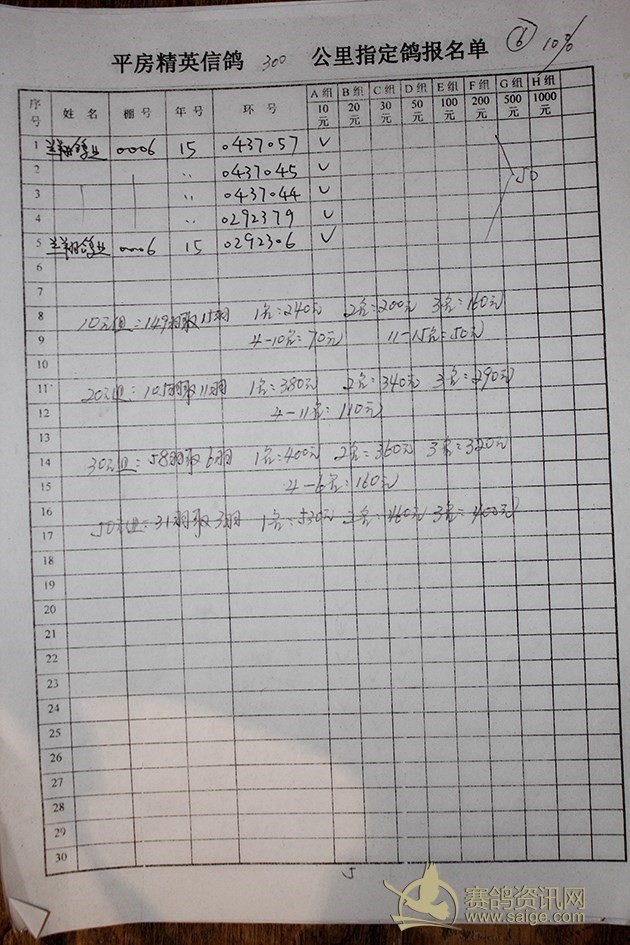 平房精英信鸽 300 公里指定鸽报名单 6 10%
序号 姓名 棚号 年号 环号 A组 10元 B组 20元 C组 30元 D组 50元 E组 100元 F组 200元 G组 500元 H组 1000元
1 0006 15 0437057 ✓
2 〃 0437045 ✓
3 〃 0437044 ✓ 50
4 〃 0292379 ✓
5 0006 15 0292306 ✓
6
7
8 10元组:149羽取15羽 1名:240元 2名:200元 3名:160元
9 4-10名:70元 11-15名:50元
10
11 20元组:105羽取11羽 1名:380元 2名:340元 3名:290元
12 4-11名:110元
13
14 30元组:58羽取6羽 1名:400元 2名:360元 3名:320元
15 4-6名:160元
16
17 50元组:31羽取3羽 1名:530元 2名:460元 3名:400元
18
19
20
21
22
23
24
25
26
27
28
29
30
5
赛鸽资讯网
www.saige.com